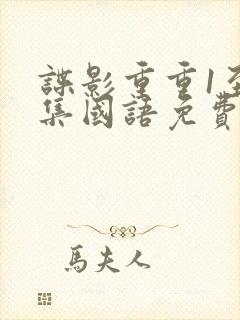 諜影重重1至
集國語免費
馬夫人